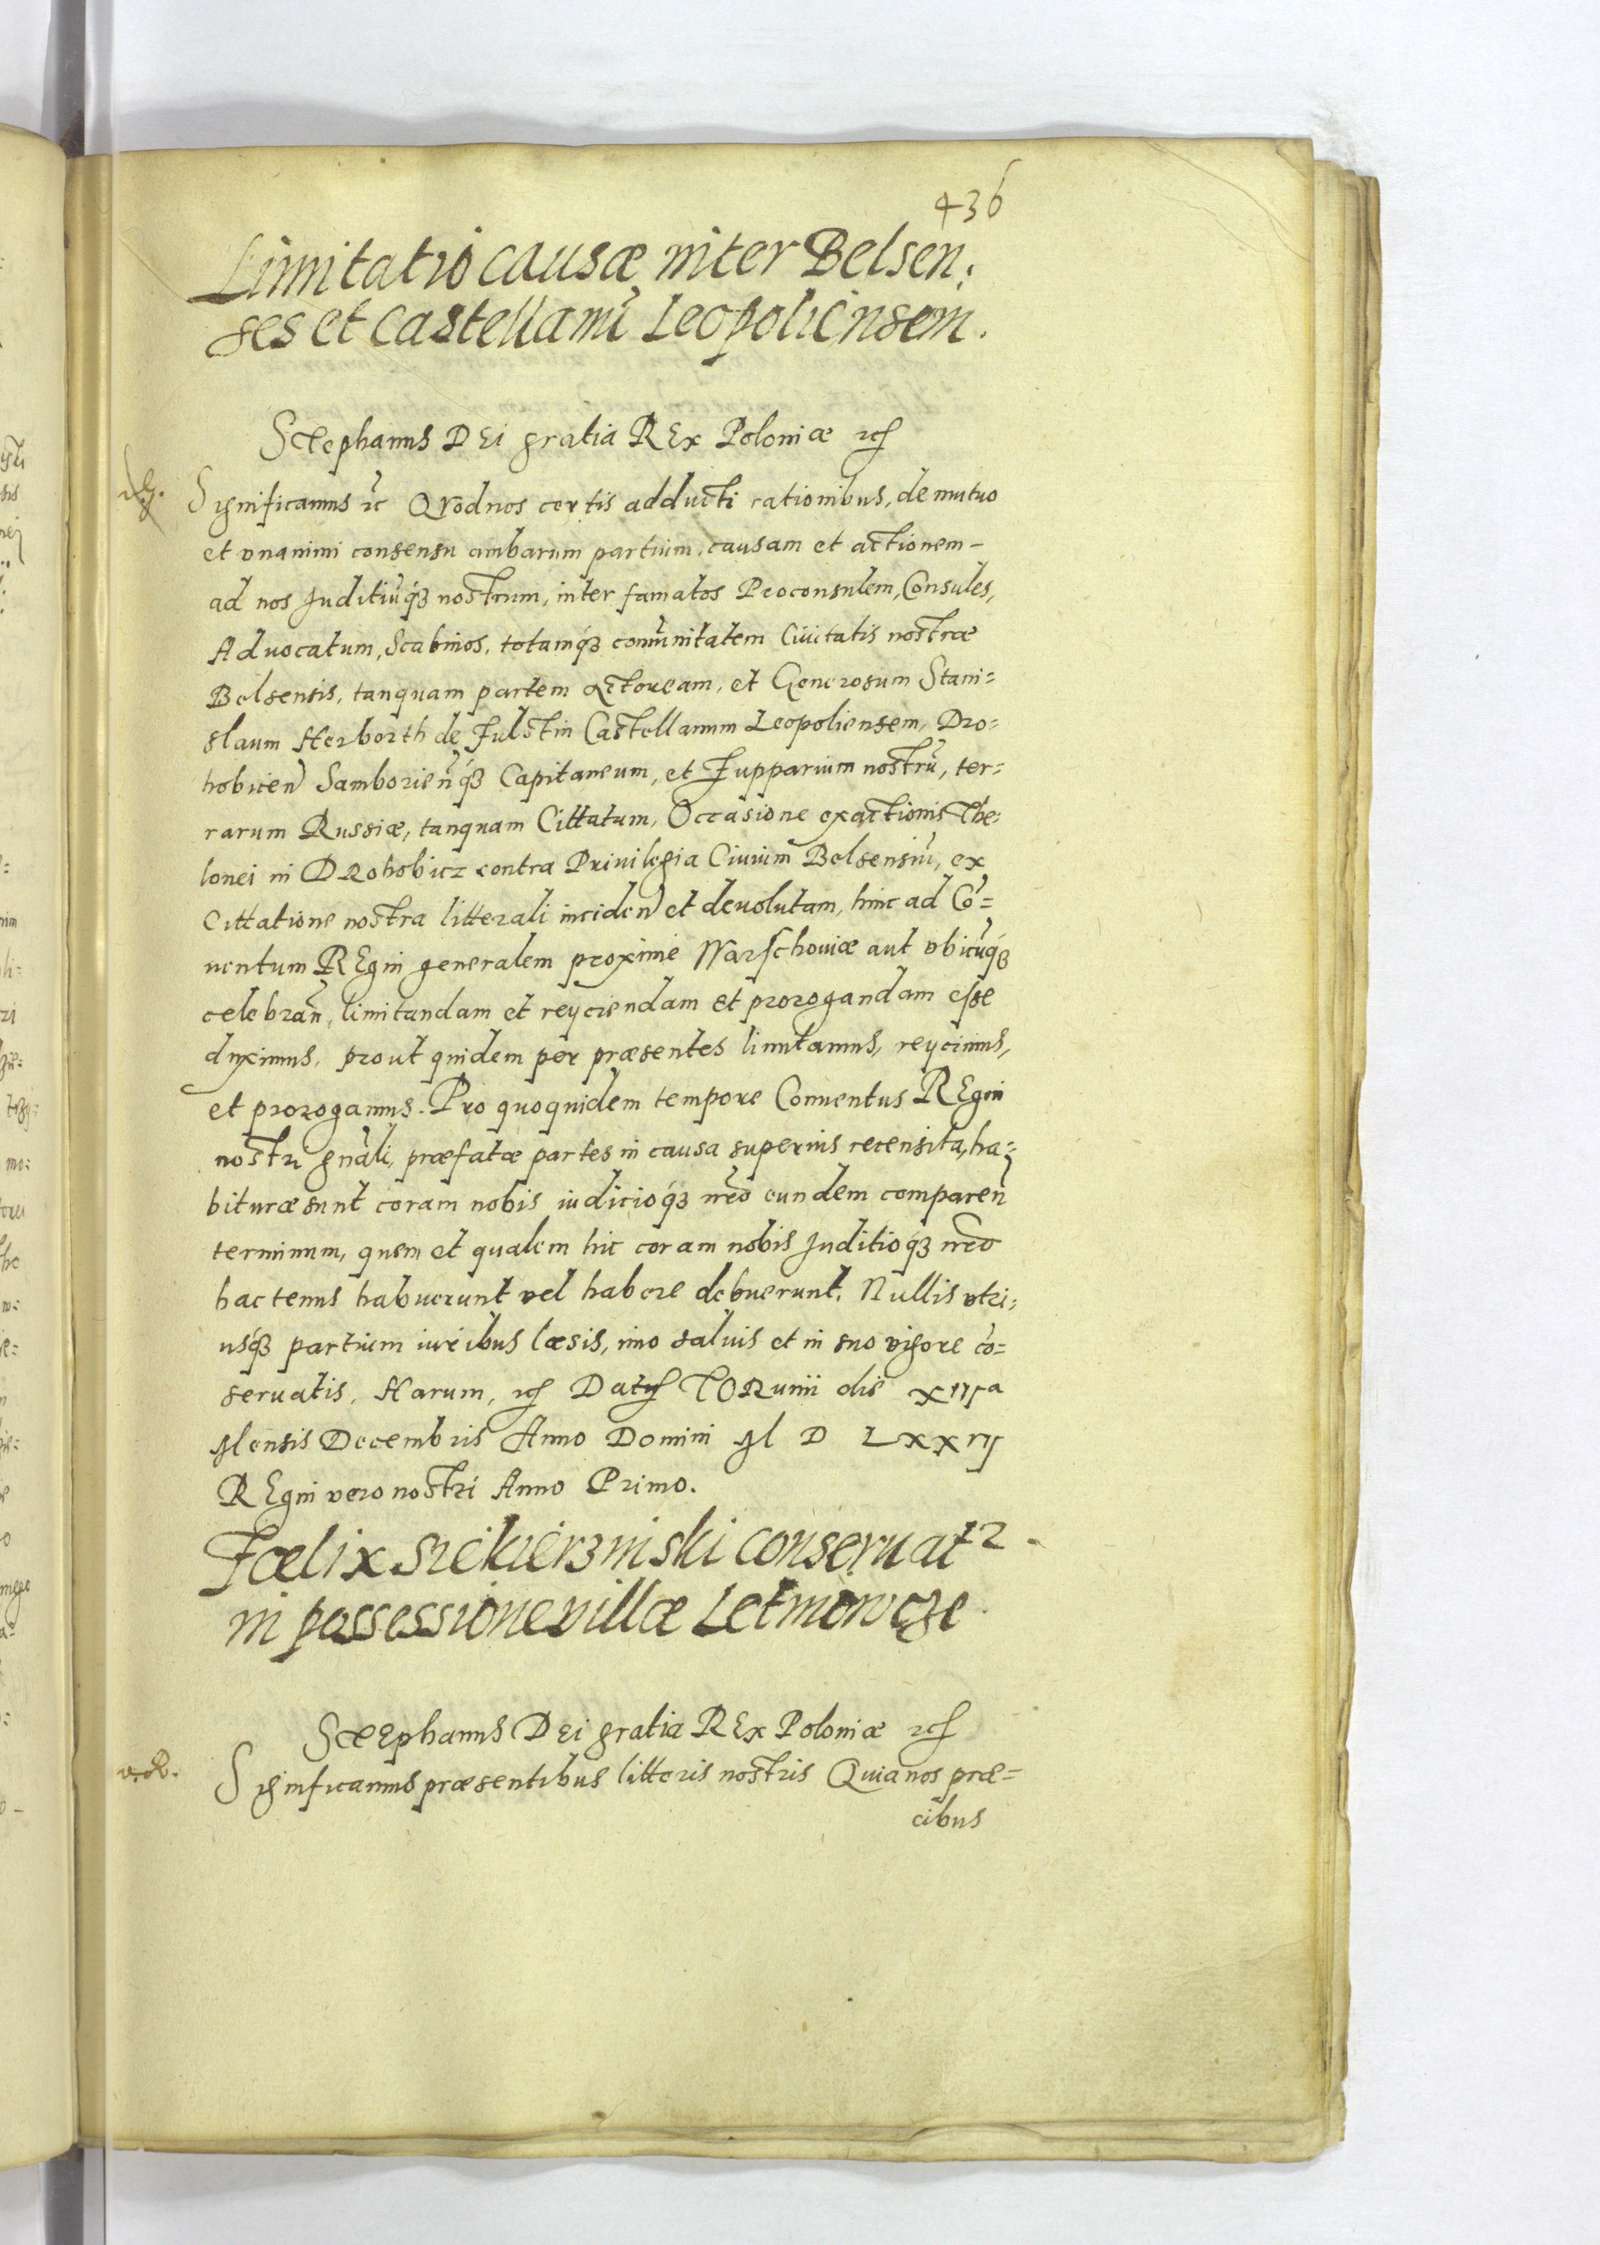 436
Limitatio causæ inter Belsen:
ses et Castellanũ Leopoliensem.
Stephanus DEi gratia REx Poloniæ etc
Significamus etc Quod nos certis adducti rationibus, de mutuo
et vnanimi consensu ambarum partium, causam et actionem –
ad nos Juditiũq́ꝫ nostrum, inter famatos Proconsulem, Consules,
Aduocatum, Scabinos, totamq́ꝫ comũnitatem Ciuitatis nostræ
Belsensis, tanquam partem actoream, et Generosum Stani=
slaum Herborth de Fulstin Castellanum Leopoliensem, Dro=
hobicen Samborieñq́ꝫ Capitaneum, et Zupparium nostrũ, ter=
rarum Russiæ, tanquam Cittatum, Occasione exactionis The:
lonei in DRohobicz contra Priuilegia Ciuium Belsensiũ, ex
Cittatione nostra litterali inciden et deuolutam, hinc ad Cõ=
uentum REgni generalem proxime Warschouiæ aut vbicũq́ꝫ
celebrañ, limitandam et reyciendam et prorogandam esse
duximus, prout quidem per præsentes limitamus, reycimus,
et prorogamus. Pro quoquidem tempore Conuentus REgni
nostri gñali, præfatæ partes in causa superius recensita, ha=
bituræ sunt coram nobis iudicioq́ꝫ nr̃o eundem compareñ
terminum, quem et qualem hic coram nobis Juditioq́ꝫ nr̃o
hactenus habuerunt vel habere debuerunt. Nullis vtri:
usq́ꝫ partium iuribus læsis, imo saluis et in suo vigore cõ=
seruatis. Harum, etc Datum TORunii die XIIIa
Mensis Decembris Anno Domini M D LXXVI
REgni vero nostri Anno Primo.
Fœlix Siekierzinski conseruatr
in possessione villæ Letmowcze
StEphanus DEi gratia REx Poloniæ etc
Significamus præsentibus litteris nostris Quia nos præ=
cibus